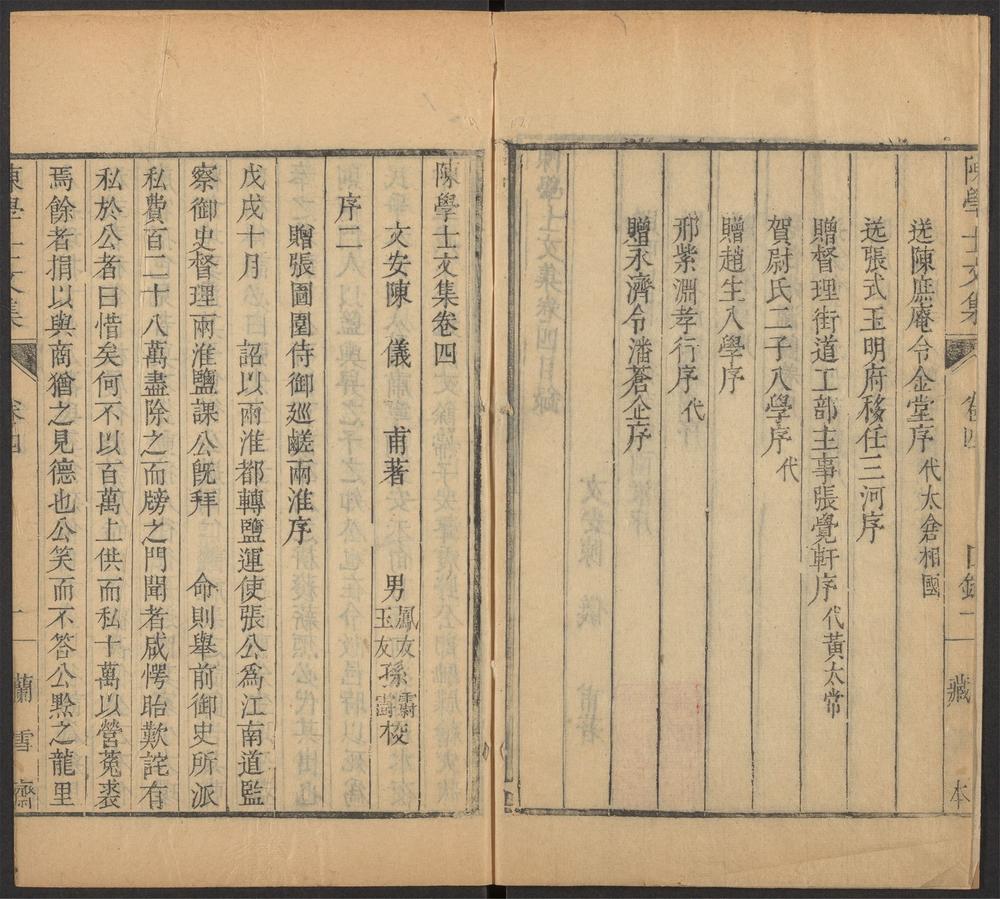 陳學士文集 卷四 目錄 二 藏 本
送陳庶庵令金堂序代太倉相國
送張式玉明府移任三河序
贈督理街道工部主事張覺軒序代黃太常
賀尉氏二子入學序代
贈趙生入學序
邢紫淵孝行序代
贈永濟令潘蒼企序
陳學士文集卷四
文安陳 儀 甫著 男鳳友玉友孫 校
序二
贈張圖圍侍御廵鹺兩淮序
戊戌十月 詔以兩淮都轉鹽運使張公爲江南道監
察御史督理兩淮鹽課公旣拜 命則舉前御史所派
私費百二十八萬盡除之而牓之門聞者咸愕眙歎詫有
私於公者曰惜矣何不以百萬上供而私十萬以營菟裘
焉餘者捐以與商猶之見德也公笑而不答公黔之龍里
陳學士文集 卷四 一 蘭雪齋